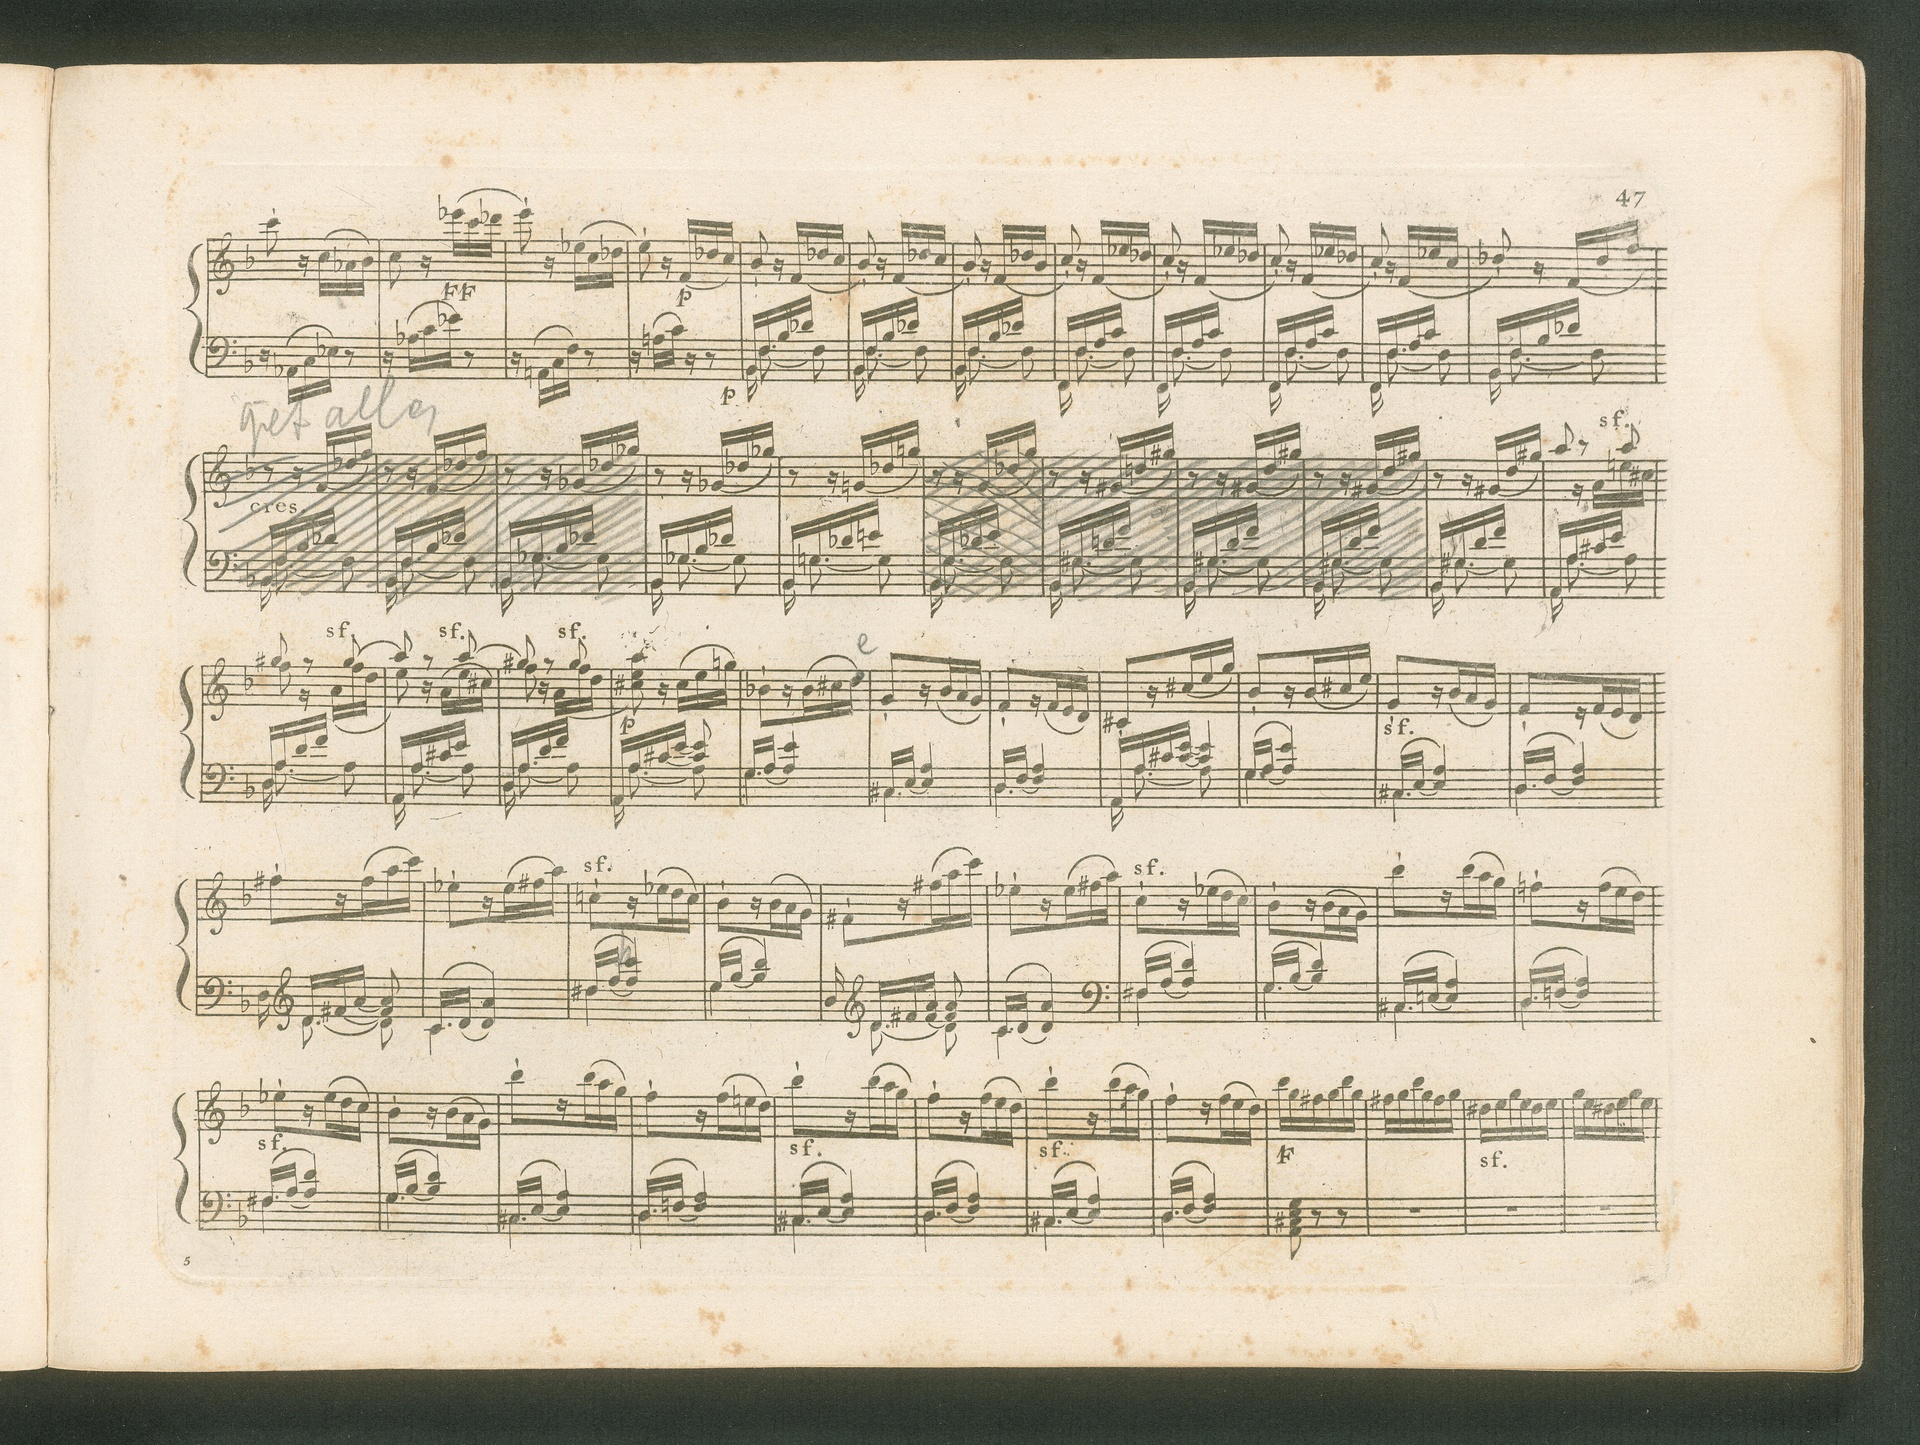 47
FF
p
p
sf.
cres
sf. sf. sf.
p
sf.
sf. sf.
sf. sf. sf. F sf.
5